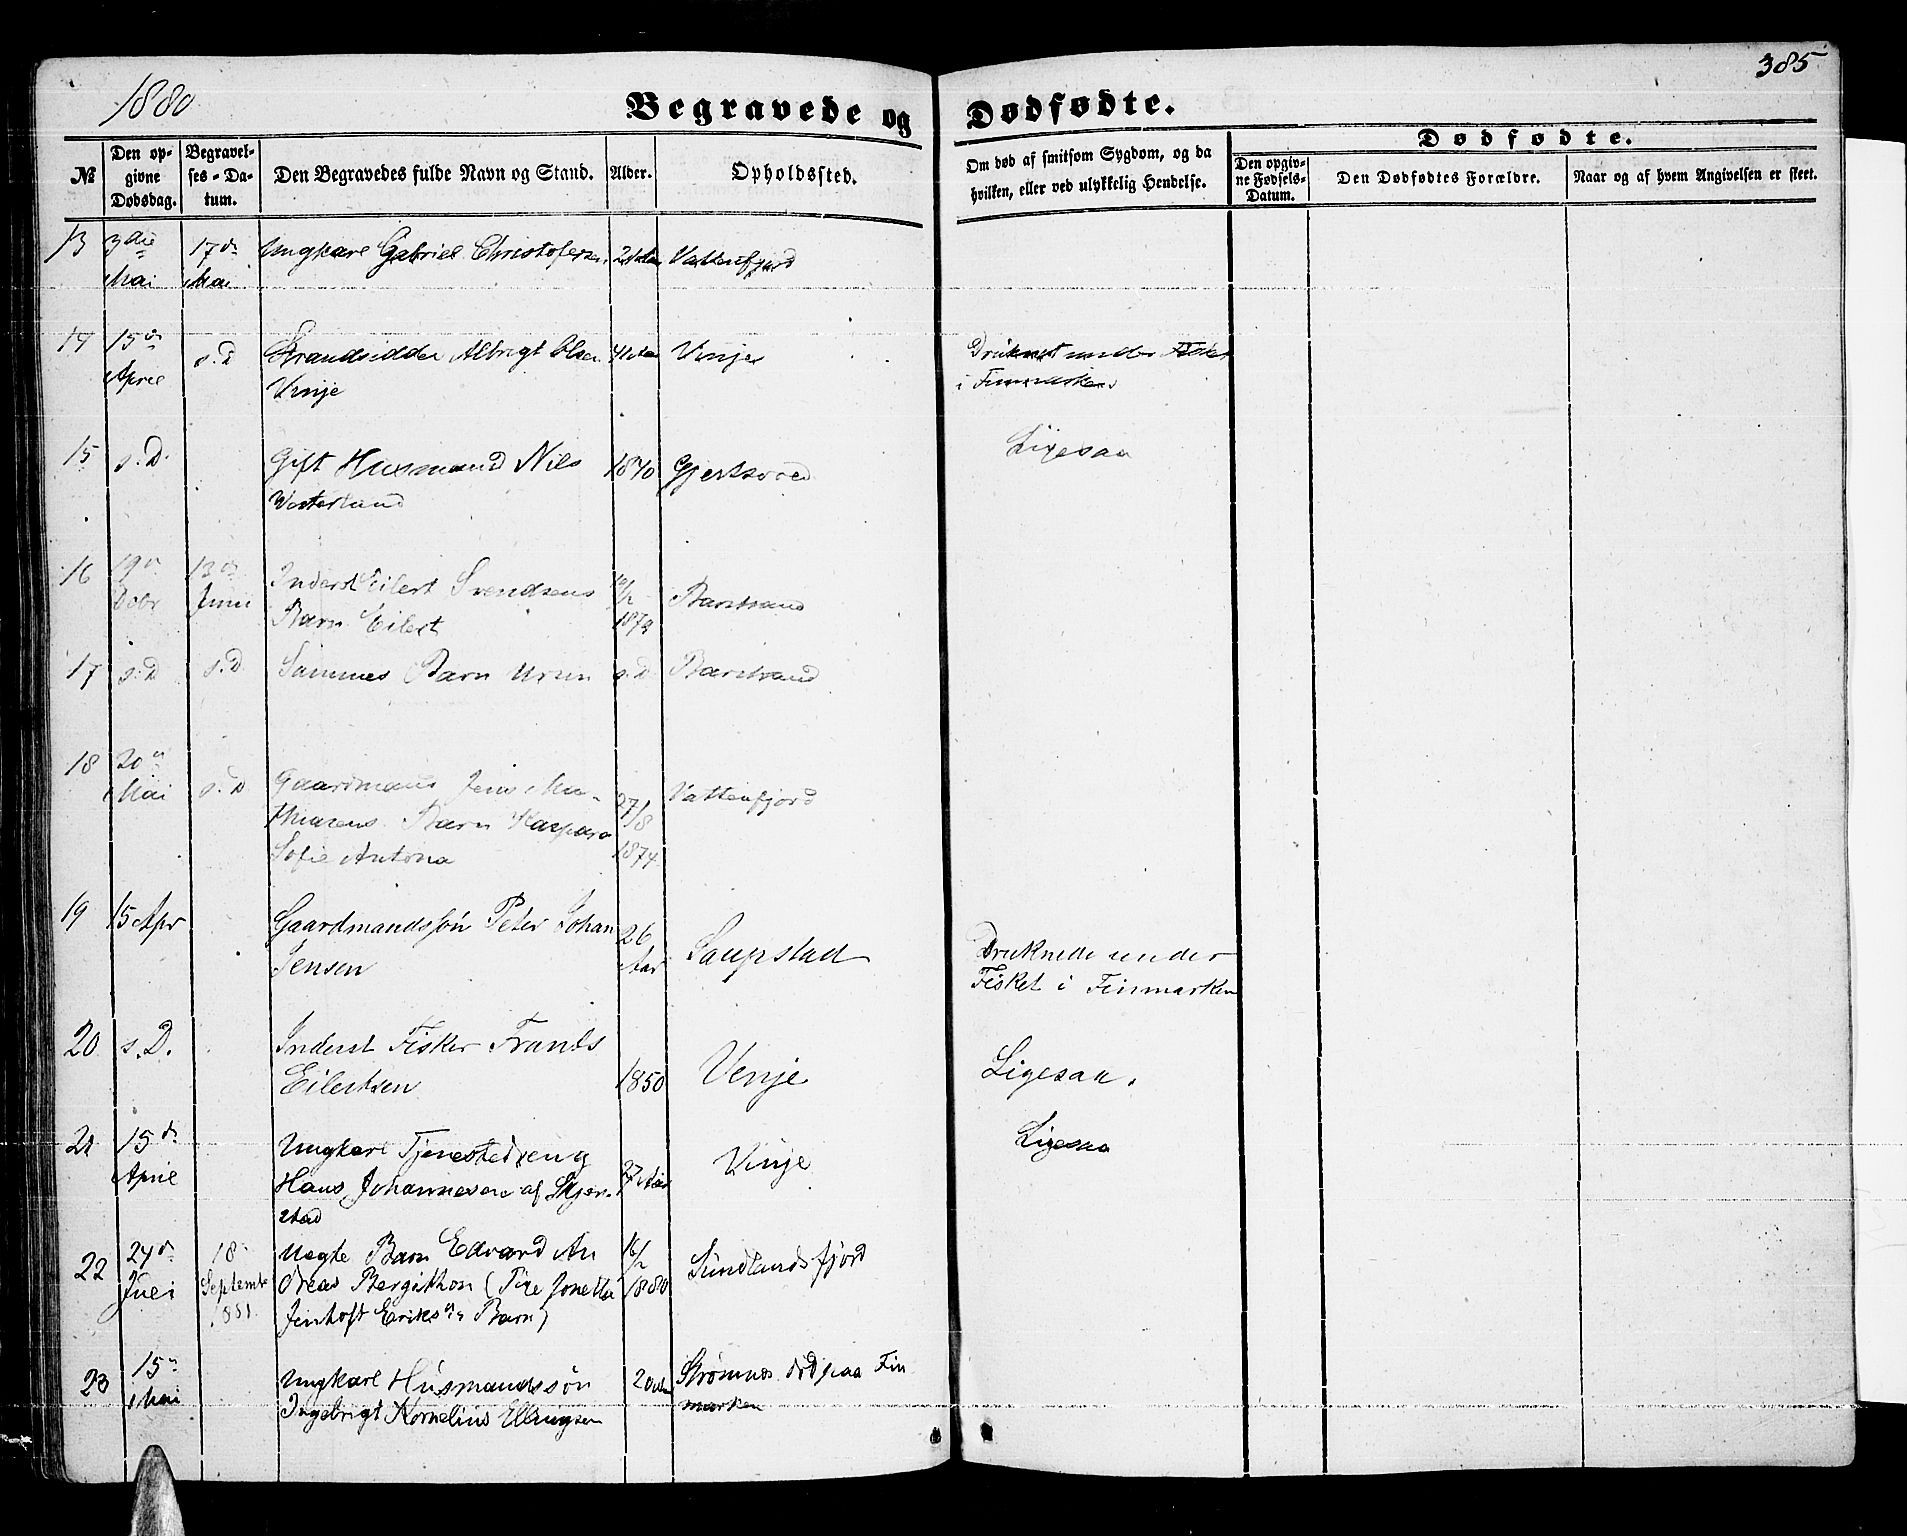 385
1880
Begravede og Dødfødte.
№
Den opgivne Dødsdag.
Begravelses-Datum.
Den Begravedes fulde Navn og Stand.
Alder.
Opholdssted.
Om død af smitsom Sygdom, og da hvilken, eller ved ulykkelig Hendelse.
Dødfødte.
Den opgivne Fødsels-Datum.
Den Dødfødtes Forældre.
Naar og af hvem Angivelsen er skeet.
13 3die 17de Ungkarl Gabriel Christofersen Vattenfjord
Mai Mai
14 15de s.D Strandsidder Albrigt Olsen Vinje Druknet under Fisket
April Vinje i Finmarken
15 s.D. Gift Husmand Nils 1840 Ligesaa
Vesterland
16 19de 13de Inderst Eilert Svendsens Barstrand
Juni Barn Eilert
17 s.D s.D Sammes Barn s.D Barstrand
18 20de
Mai s.D Gaardmand Jens Ma- 27/8 Vattenfjord
thiasens Barn Kaspara 1874
Sofie Antona
19 15 Apr Gaardmandssøn Peter Johan 26 Saupstad Druknede under
Jensen Aar Fisket i Finmarken
20 s.D. Inderst Fisker Frants Venje Ligesaa.
Eilertsen 1850
21 15de Ungkarl Tjenestedreng Vinje Ligesaa
April Hans Johannesen af Skjer- 27 Aar
stad
22 24de 18 Uægte Barn Edvard An 16/ Sundlandsfjord
Juli Septemb dreas Bergithon (Pige 1880
1881. Jentoft Eriks Barn)
23 15 Ungkarl Husmandssøn 20 Strømnes død paa Fin
Mai Ingebrigt Kornelius Ellingsen marken